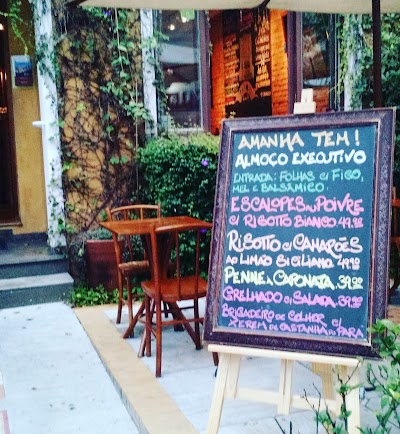 AMANHA TEM!
ALMOÇO EXECUTIVO
ENTRADA: FOLHAS C/ FIGO,
MEL E BALSÂMICO.
ESCALOPES AU POIVRE
C/ RISOTTO BIANCO 49,90
RISOTO C/ CAMARÕES
AO LIMÃO SICILIANO 49,90
PENNE À CAPONATA 39,90
GRELHADO C/ SALADA 39,90
BRIGADEIRO DE COLHER C/
XERÉM DE CASTANHA DO PARÁ